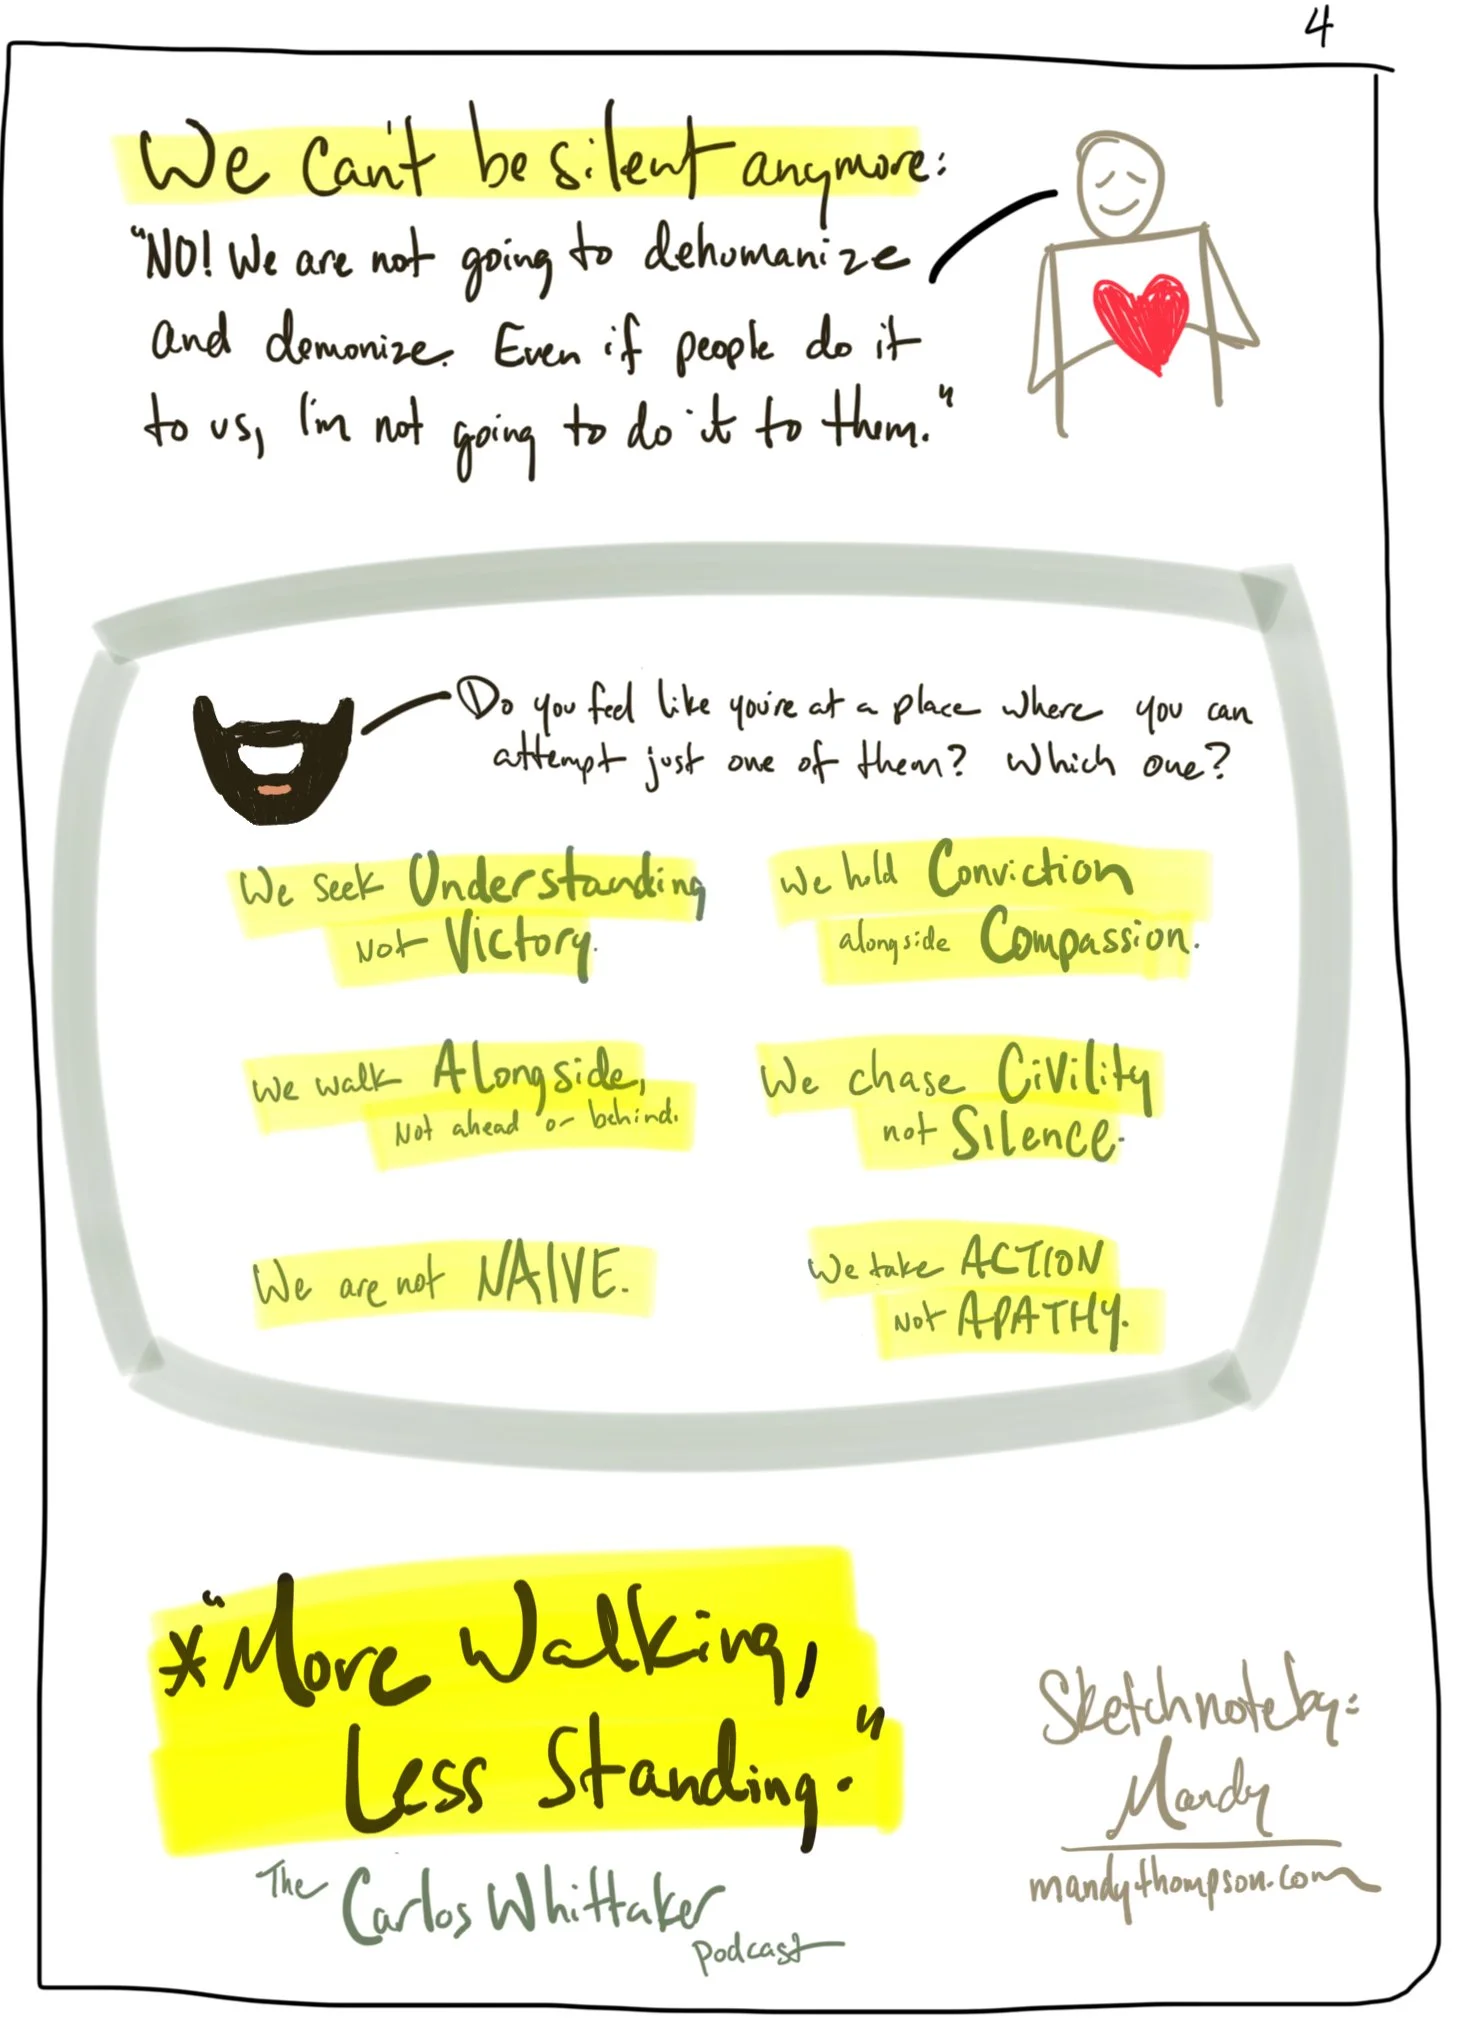 4
We can't be silent anymore:
"NO! We are not going to dehumanize
and demonize. Even if people do it
to us, I'm not going to do it to them."
Do you feel like you're at a place where you can
attempt just one of them? Which one?
We seek Understanding
Not Victory.
We hold Conviction
alongside Compassion.
We walk Alongside,
Not ahead or behind.
We chase Civility
not Silence.
We are not NAIVE.
We take ACTION
Not APATHY.
*"More Walking,
Less Standing."
The Carlos Whittaker
podcast
Sketchnote by:
Mandy
mandythompson.com